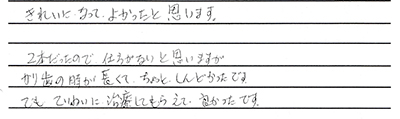 きれいになって、よかったと思います。
2本だったので仕方がないと思いますが
かり歯の時が長くて、ちょっと、しんどかったです。
でも ていねいに治療してもらえて、良かったです。